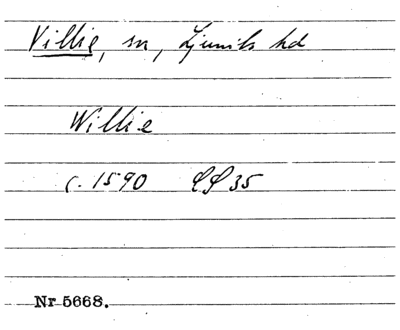 Villie, sn, Ljunits hd
Willie
c. 1590 LP 35
Nr 5668.